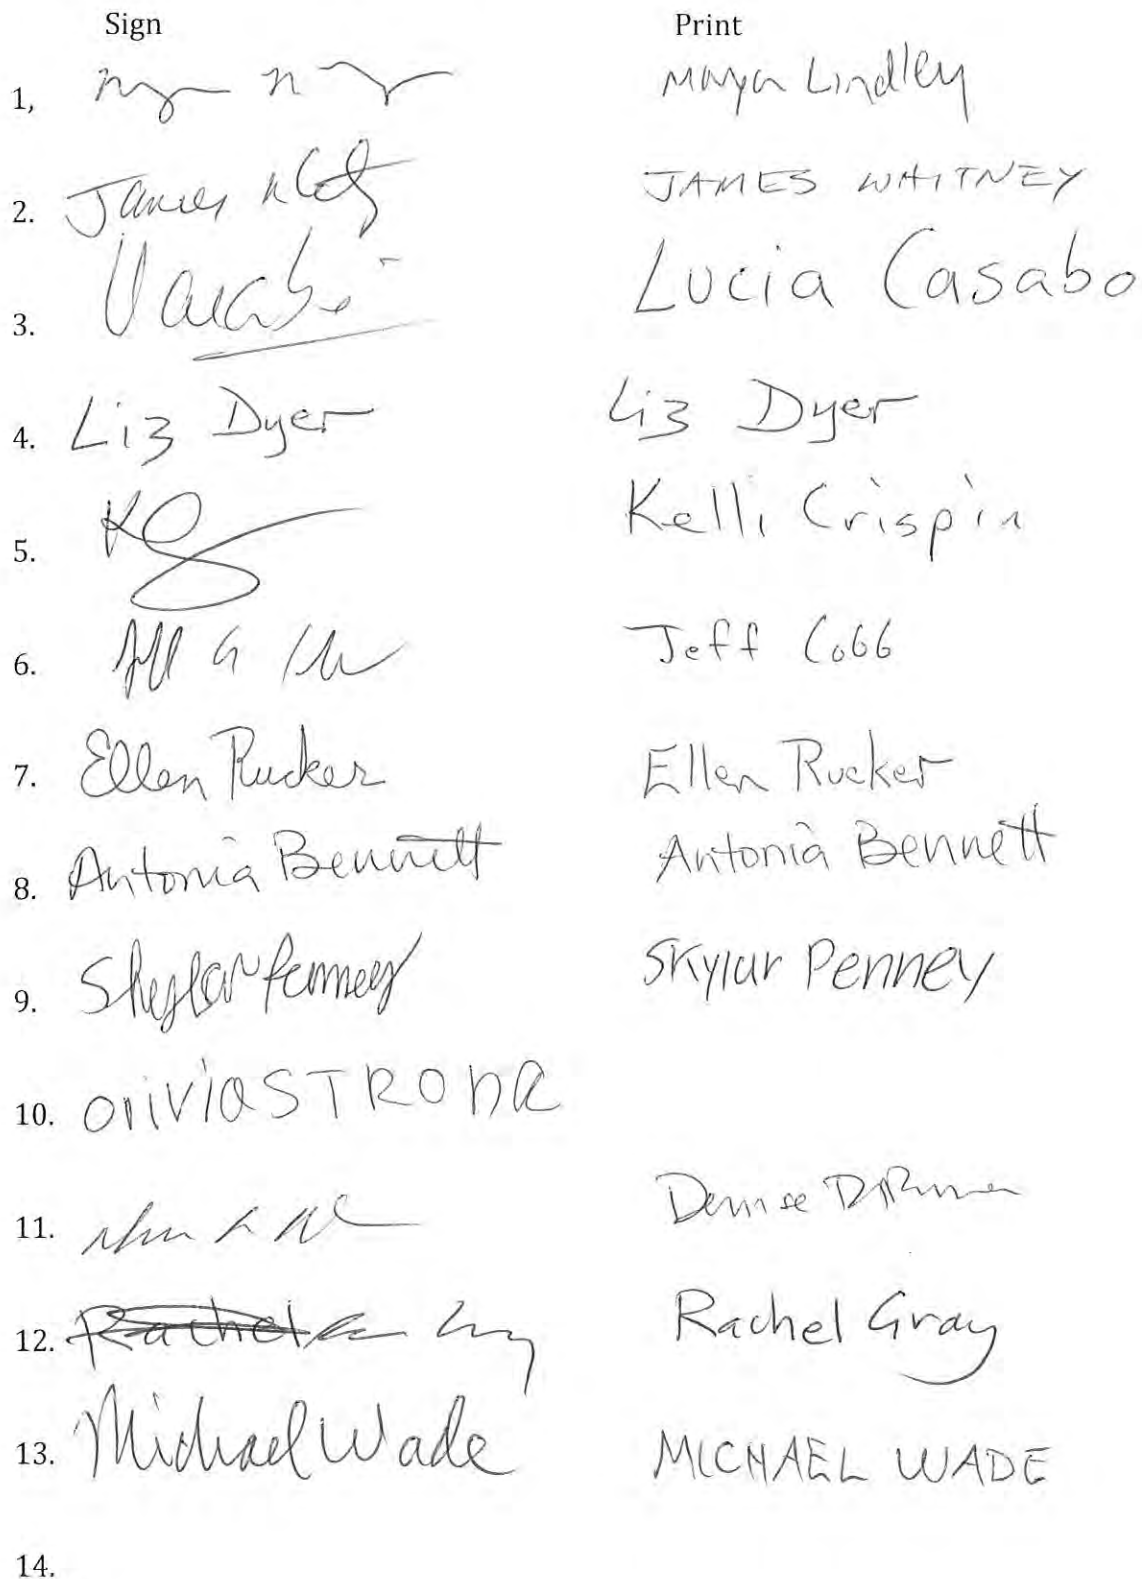 Sign Print
1, Maya Lindley
2. James JAMES WHITNEY
3. Lucia Casabo
4. Liz Dyer Liz Dyer
5. Kelli Crispin
6. Jeff Cobb
7. Ellen Rucker Ellen Rucker
8. Antonia Bennett Antonia Bennett
9. Skylar Penney Skylar Penney
10. OliviaSTRONA
11. Denise
12. Rachel Rachel Gray
13. Michael Wade MICHAEL WADE
14.